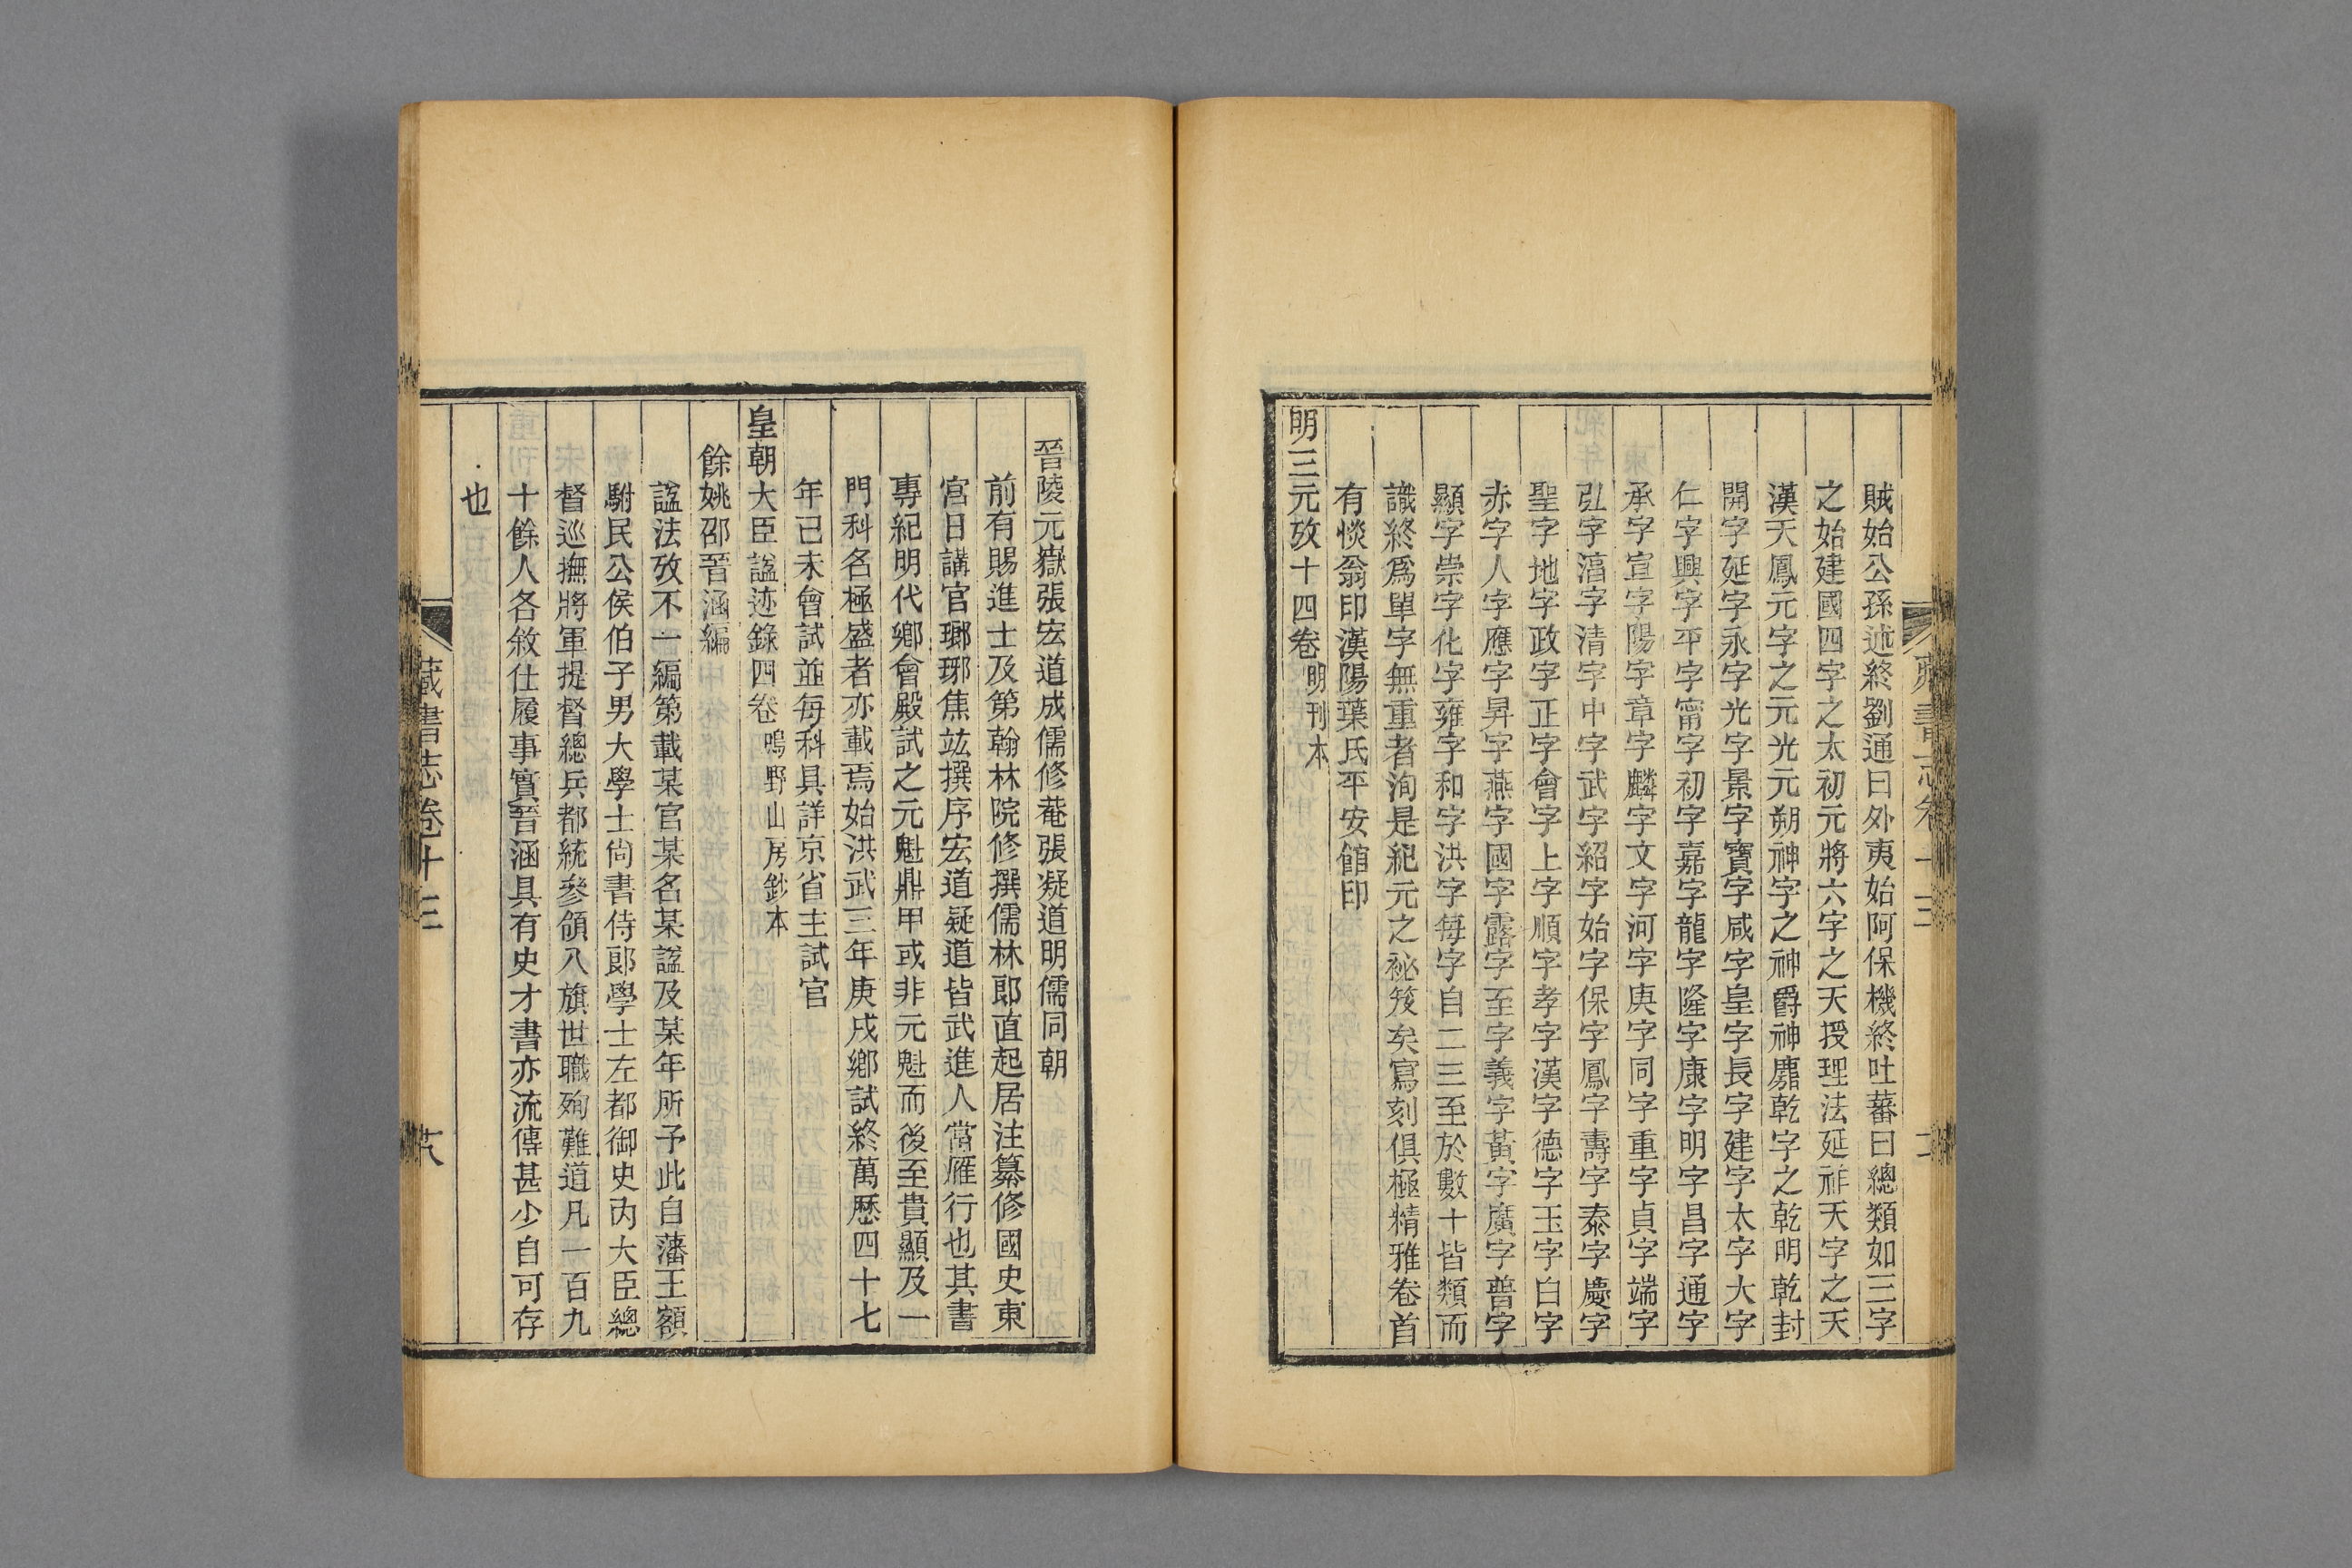 賊始公孫述終劉通曰外夷始阿保機終吐蕃曰總類如三字
之始建國四字之太初元將六字之天授理法延祚天字之天
漢天鳳元字之元光元朔神字之神爵神麚乾字之乾明乾封
開字延字永字光字景字寶字咸字皇字長字建字太字大字
仁字興字平字甯字初字嘉字龍字隆字康字明字昌字通字
承字宣字陽字章字麟字文字河字庚字同字重字貞字端字
弘字淯字清字中字武字紹字始字保字鳳字壽字泰字慶字
聖字地字政字正字會字上字順字孝字漢字德字玉字白字
赤字人字應字昇字燕字國字露字至字義字黃字廣字普字
顯字崇字化字雍字和字洪字每字自二三至於數十皆類而
識終爲單字無重者洵是紀元之祕笈矣寫刻俱極精雅卷首
有惔翁印漢陽葉氏平安館印
明三元攷十四卷明刊本
晉陵元嶽張宏道成儒修菴張凝道明儒同朝
前有賜進士及第翰林院修撰儒林郎直起居注纂修國史東
宮日講官瑯琊焦竑撰序宏道疑道皆武進人常雁行也其書
專紀明代鄉會殿試之元魁鼎甲或非元魁而後至貴顯及一
門科名極盛者亦載焉始洪武三年庚戌鄉試終萬歷四十七
年己未會試並每科具詳京省主試官
皇朝大臣諡迹錄四卷鳴野山房鈔本
餘姚邵晉涵編
諡法攷不一編第載某官某名某諡及某年所予此自藩王額
駙民公侯伯子男大學士尙書侍郎學士左都御史內大臣總
督巡撫將軍提督總兵都統參領八旗世職殉難道凡一百九
十餘人各敘仕履事實晉涵具有史才書亦流傳甚少自可存
也
藏書志卷十三